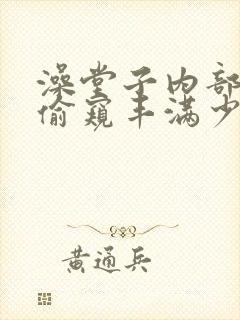 澡堂子内部
偷窥丰满少
黄通兵